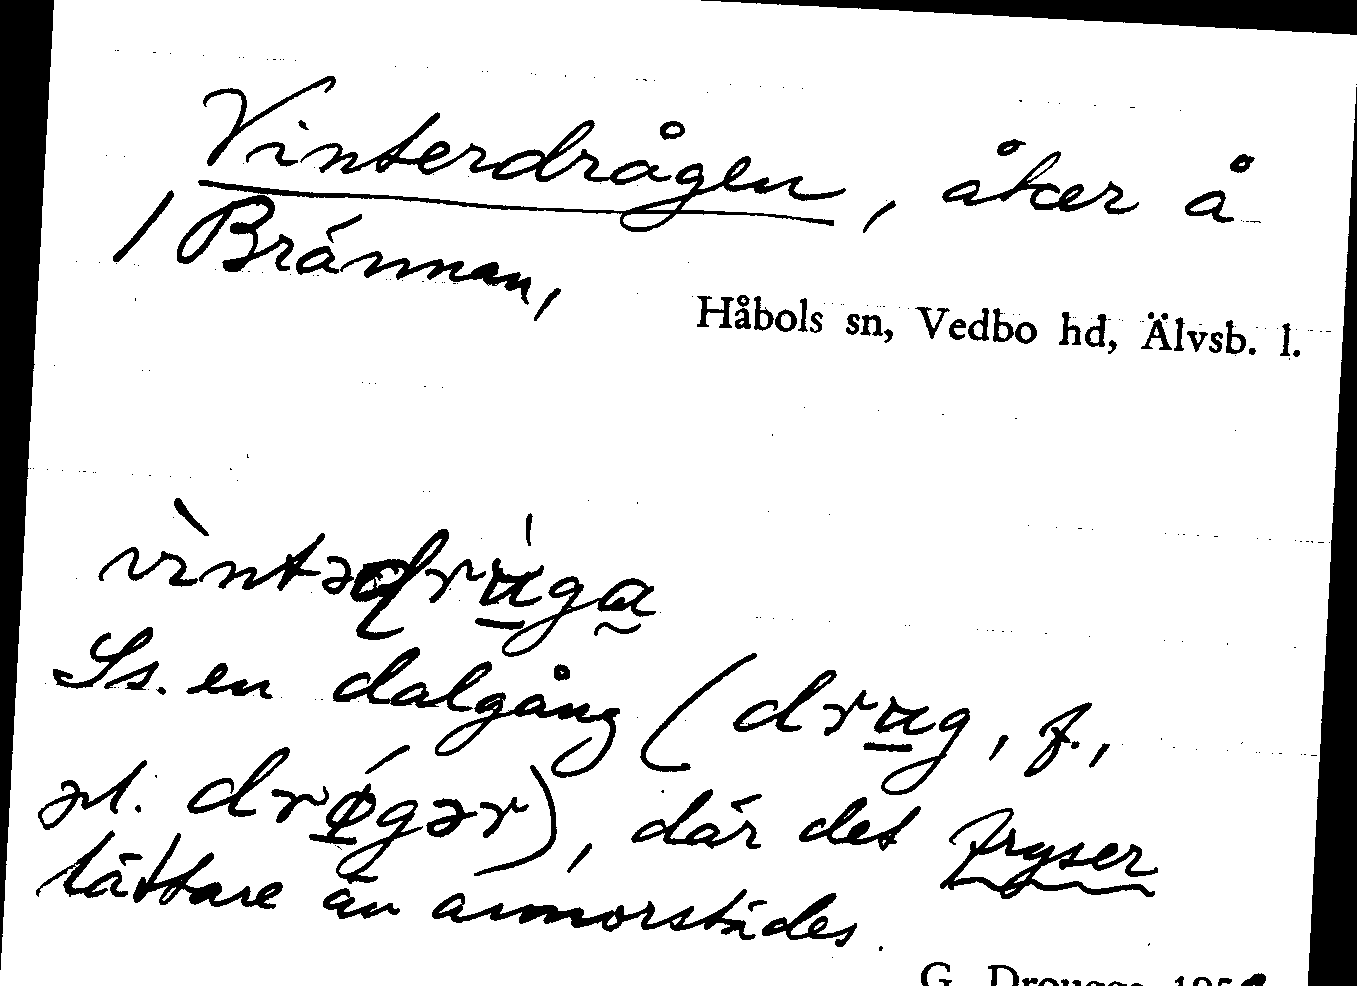 Vinterdrågen, åker å
/ Brännan,
Håbols sn, Vedbo hd, Älvsb. l.
Ss. en dalgång (drug, f.,
pl. drǿgər), där det fryser
lättare än annorstädes.
G. Drougge